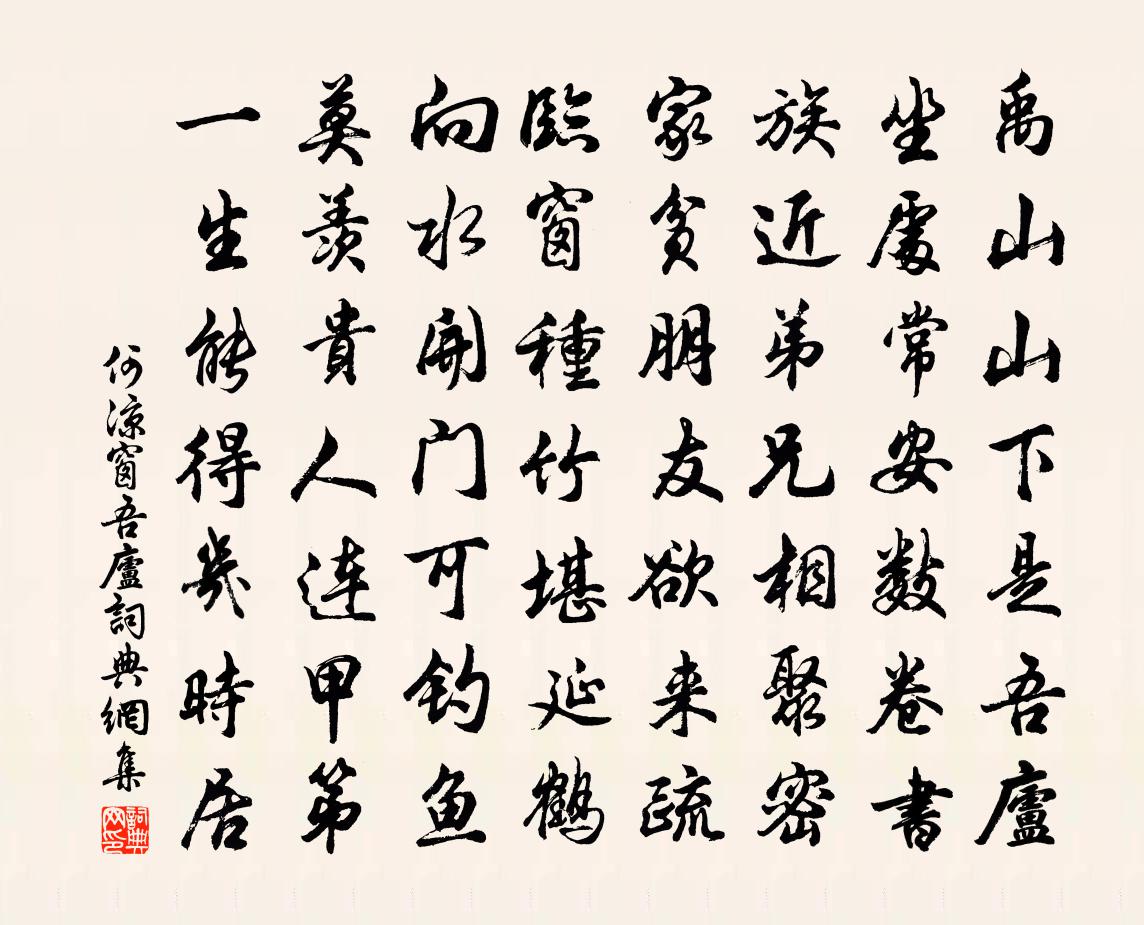 禹山山下是吾廬
坐處常安數卷書
族近弟兄相聚密
家貧朋友欲来疏
臨窗種竹堪延鶴
向水開門可釣鱼
莫羨貴人連甲第
一生能得幾時居
何涼窗吾廬詞典網集
詞典网印